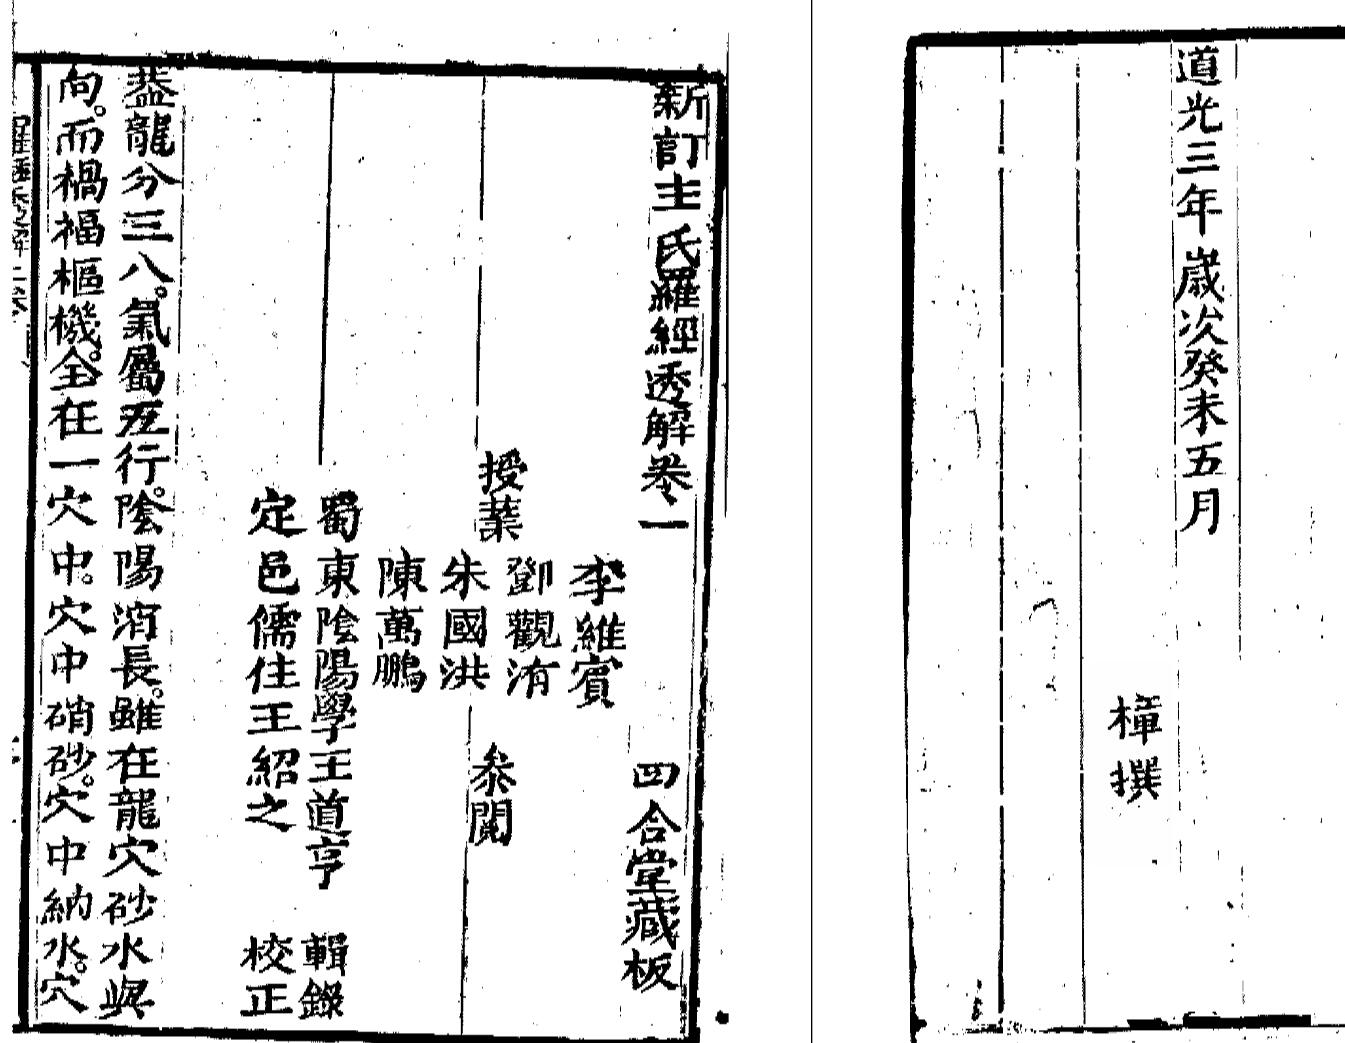 道光三年歲次癸未五月
樟撰
新訂王氏羅經透解卷一
四合堂藏板
李維賓
授業
鄧觀洧
朱國洪
參閱
陳萬鵬
蜀東陰陽學王道亨 輯錄
定邑儒佳王紹之 校正
葢龍分三八。氣屬五行。陰陽消長。雖在龍穴砂水與
向。而禍福樞機。全在一穴中。穴中硝砂。穴中納水。穴